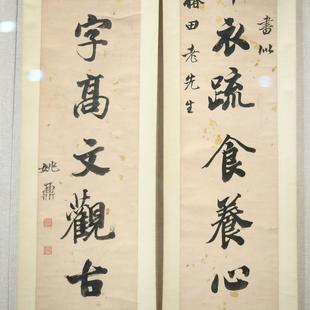 書似
衣疏食養心
梅田老先生
字髙文觀古
姚鼐